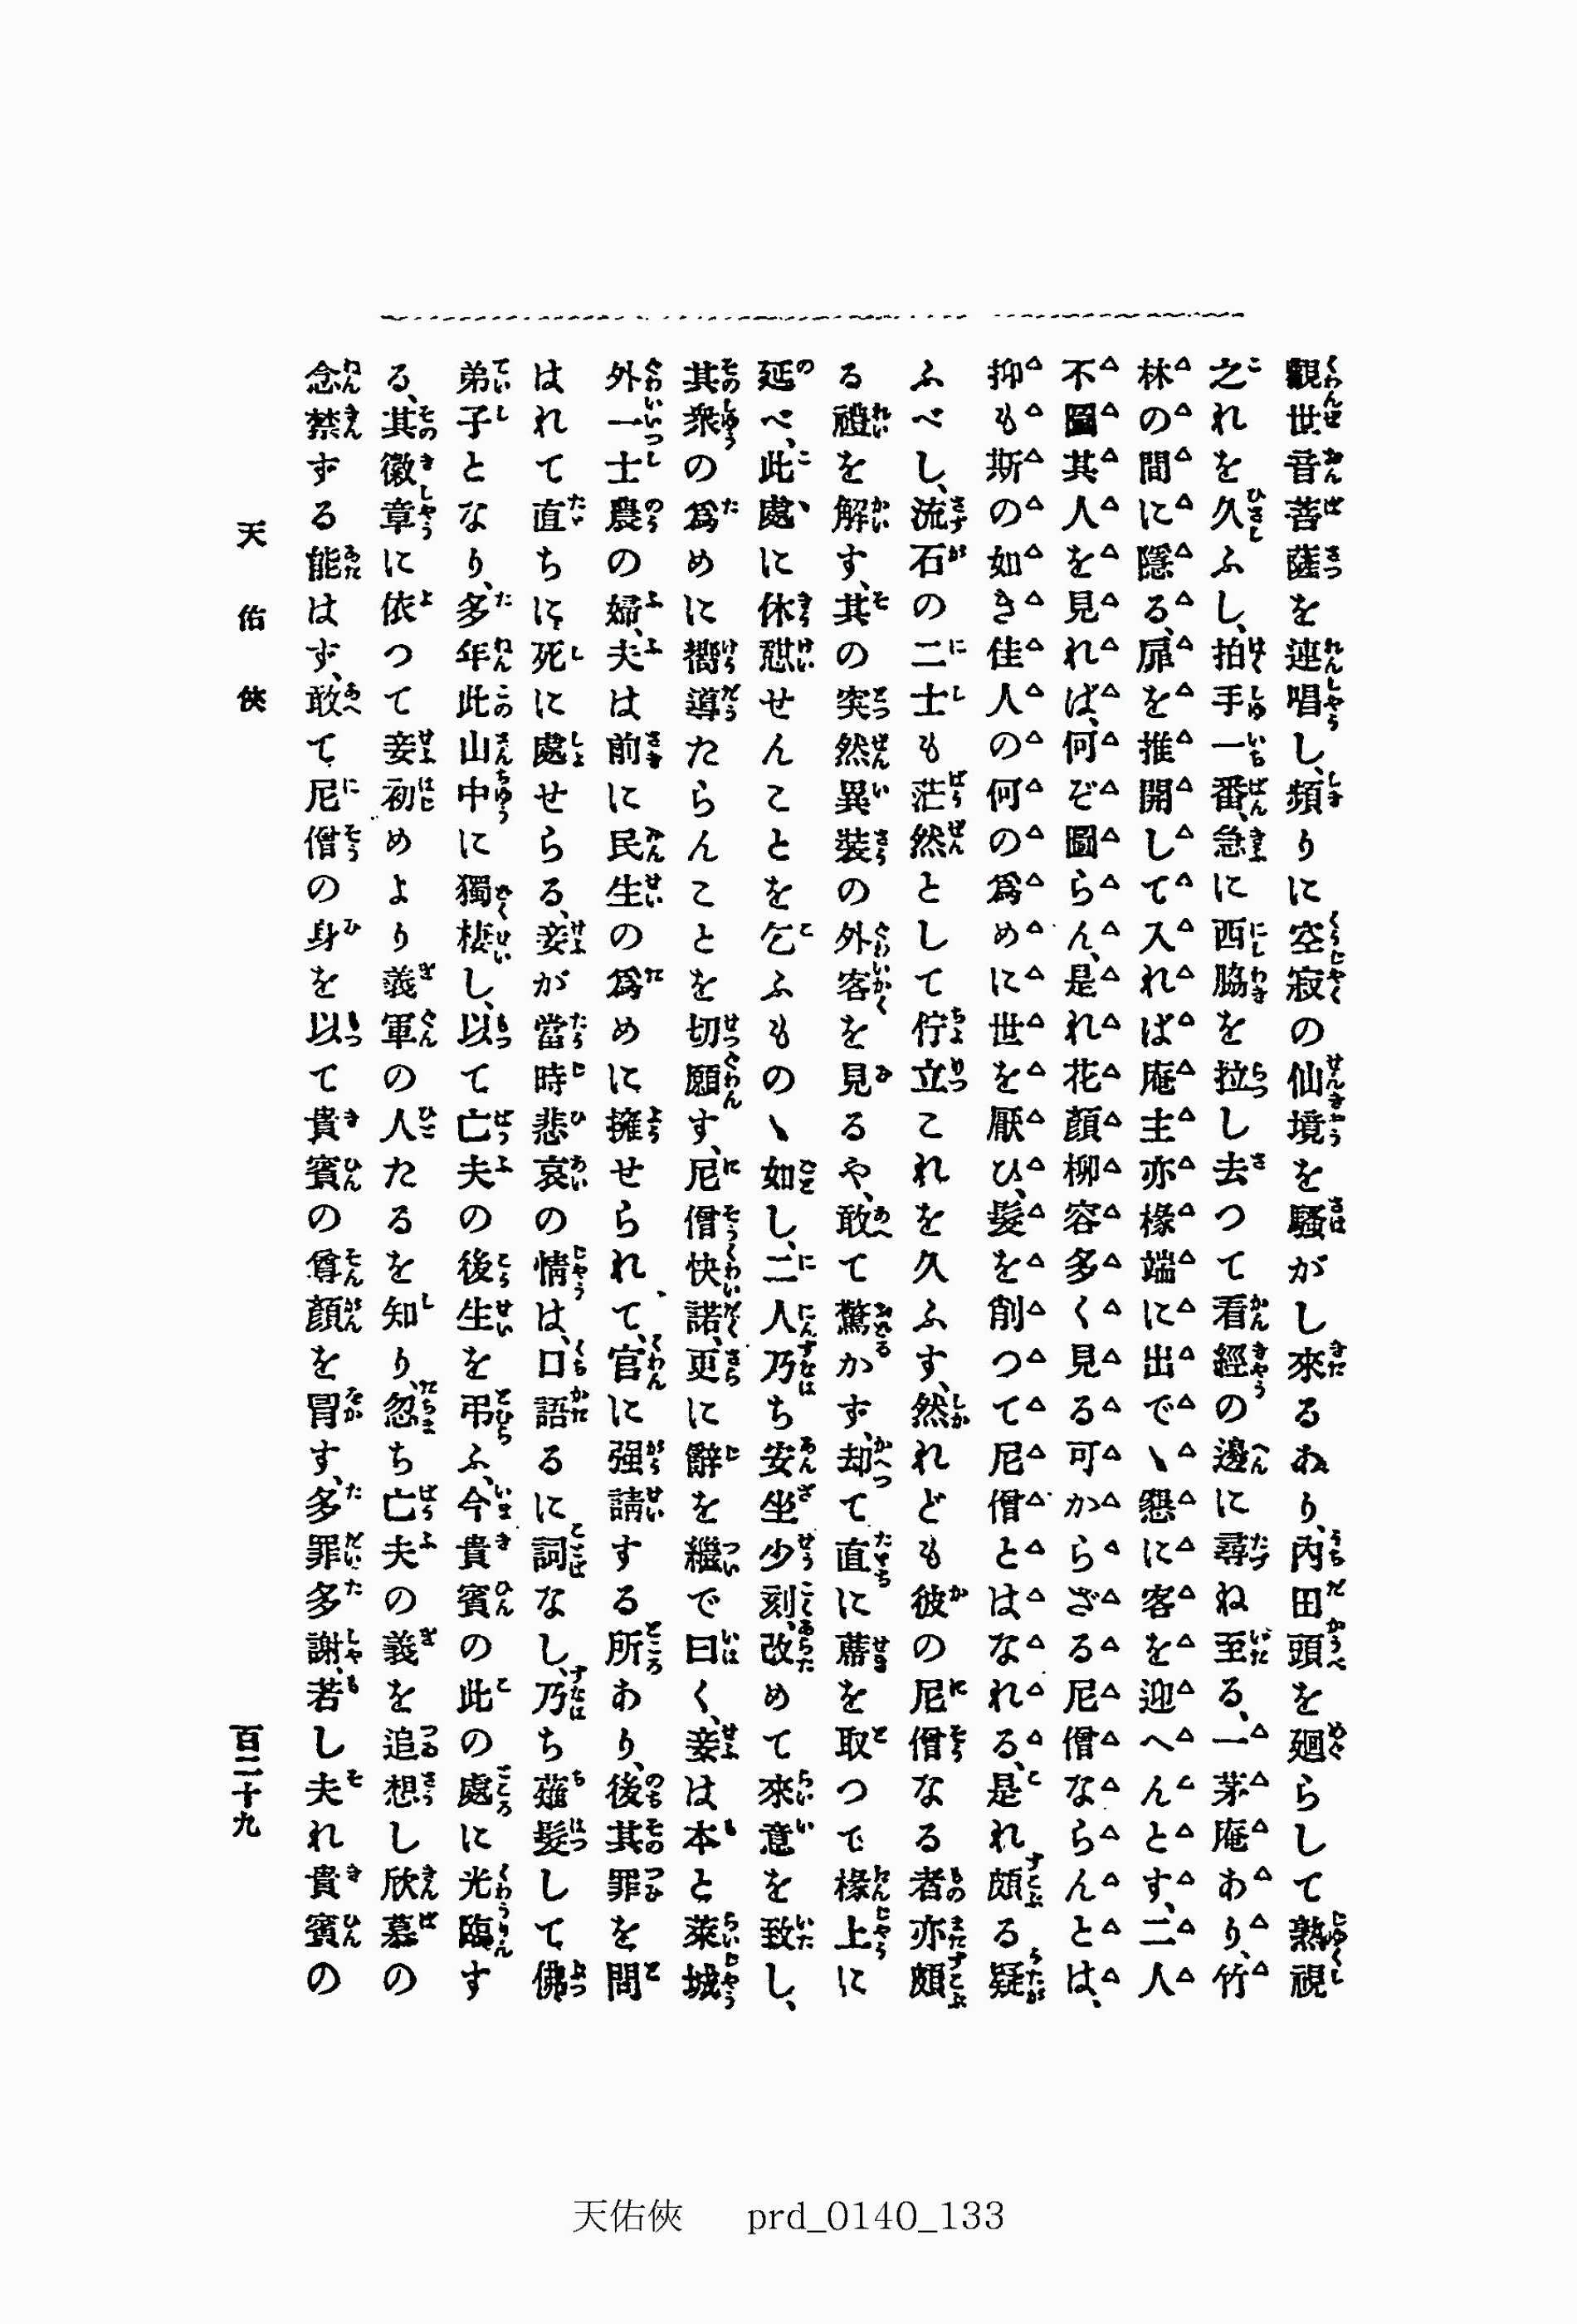 觀世音菩薩を連唱し、頻りに空寂の仙境を騷がし來るあり、內田頭を廻らして熟視
之れを久ふし、拍手一番、急に西脇を拉し去つて看經の邊に尋ね至る、一茅庵あり、竹
林の間に隱る、扉を推開して入れば庵主亦椽端に出で丶懇に客を迎へんとす、二人
不圖其人を見れば、何ぞ圖らん、是れ花顏柳容多く見る可からざる尼僧ならんとは、
抑も斯の如き佳人の何の爲めに世を厭ひ、髮を削つて尼僧とはなれる、是れ頗る疑
ふべし、流石の二士も茫然として佇立これを久ふす、然れども彼の尼僧なる者亦頗
る禮を解す、其の突然異裝の外客を見るや、敢て驚かず、却て直に蓆を取つで椽上に
延べ、此處に休憇せんことを乞ふもの丶如し、二人乃ち安坐少刻、改めて來意を致し、
其衆の爲めに嚮導たらんことを切願す、尼僧快諾、更に辭を繼で曰く、妾は本と萊城
外一士農の婦、夫は前に民生の爲めに擁せられて、官に强請する所あり、後其罪を問
はれて直ちに死に處せらる、妾が當時悲哀の情は、口語るに詞なし、乃ち薙髮して佛
弟子となり、多年此山中に獨棲し、以て亡夫の後生を弔ふ、今貴賓の此の處に光臨す
る、其徽章に依つて妾初めより義軍の人たるを知り、忽ち亡夫の義を追想し欣慕の
念禁ずる能はず、敢て尼僧の身を以て貴賓の尊顏を冒す、多罪多謝、若し夫れ貴賓の
天佑俠
百二十九
天佑俠 prd_0140_133